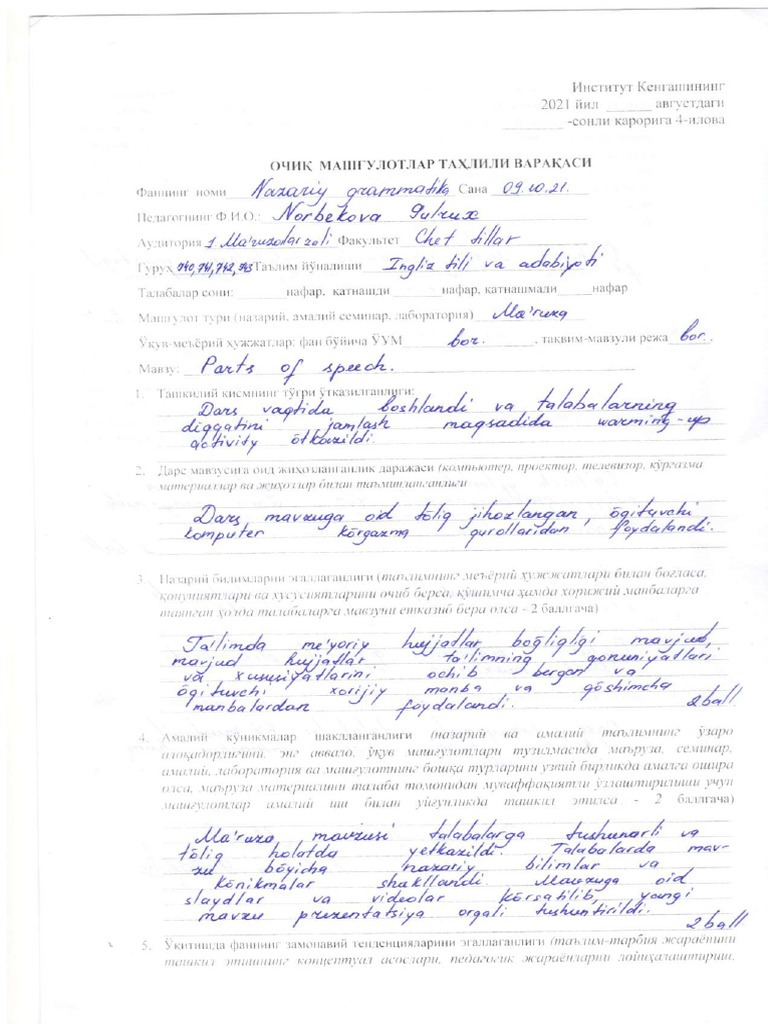 Институт Кенгашининг
2021 йил ______ августдаги
________ -сонли қарорига 4-илова
ОЧИҚ МАШҒУЛОТЛАР ТАҲЛИЛИ ВАРАҚАСИ
Фаннинг номи Nazariy grammatika Сана 09.10.21.
Педагогнинг Ф.И.О.: Norbekova Gulrux
Аудитория 1 Ma'ruzalar zali Факультет Chet tillar
Гуруҳ 740, 741, 742, 743 Таълим йўналиши Ingliz tili va adabiyoti
Талабалар сони: ______ нафар, қатнашди ______ нафар, қатнашмади ____ нафар
Машғулот тури (назарий, амалий семинар, лаборатория) Ma'ruza
Ўқув-меъёрий ҳужжатлар: фан бўйича ЎУМ bor. , тақвим-мавзули режа bor.
Мавзу: Parts of speech.
1. Ташкилий қисмнинг тўғри ўтказилганлиги:
Dars vaqtida boshlandi va talabalarning
diqqatini jamlash maqsadida warming-up
activity ōtkazildi.
2. Дарс мавзусига оид жиҳозланганлик даражаси (компьютер, проектор, телевизор, кўргазма
материаллар ва жиҳозлар билан таъминланганлиги
Dars mavzuga oid tōliq jihozlangan, ōqituvchi
komputer kōrgazma qurollaridan foydalandi.
3. Назарий билимларни эгаллаганлиги (таълимнинг меъёрий ҳужжатлари билан боғласа,
қонуниятлари ва хусусиятларини очиб берса, қўшимча ҳамда хорижий манбаларга
таянган ҳолда талабаларга мавзуни етказиб бера олса - 2 баллгача)
Ta'limda me'yoriy hujjatlar bōgliqligi mavjud,
mavjud hujjatlar ta'limning qonuniyatlari
va xususiyatlarini ochib bergan va
ōqituvchi xorijiy manba va qōshimcha
manbalardan foydalandi. 2 ball
4. Амалий кўникмалар шаклланганлиги (назарий ва амалий таълимнинг ўзаро
алоқадорлигини, энг аввало, ўқув машғулотлари тузилмасида маъруза, семинар,
амалий, лаборатория ва машғулотнинг бошқа турларини узвий бирликда амалга ошира
олса, маъруза материалини талаба томонидан муваффақиятли ўзлаштирилиши учун
машғулотлар амалий иши билан уйғунликда ташкил этилса - 2 баллгача)
Ma'ruza mavzusi talabalarga tushunarli va
tōliq holatda yetkazildi. Talabalarda mav-
zu bōyicha nazariy bilimlar va
kōnikmalar shakllandi. Mavzuga oid
slaydlar va videolar kōrsatilib, yangi
mavzu prezentatsiya orqali tushuntirildi.
2 ball
5. Ўқитишда фаннинг замонавий тенденцияларини эгаллаганлиги (таълим-тарбия жараёнини
ташкил этишнинг концептуал асослари, педагогик жараёнларни лойиҳалаштириш,